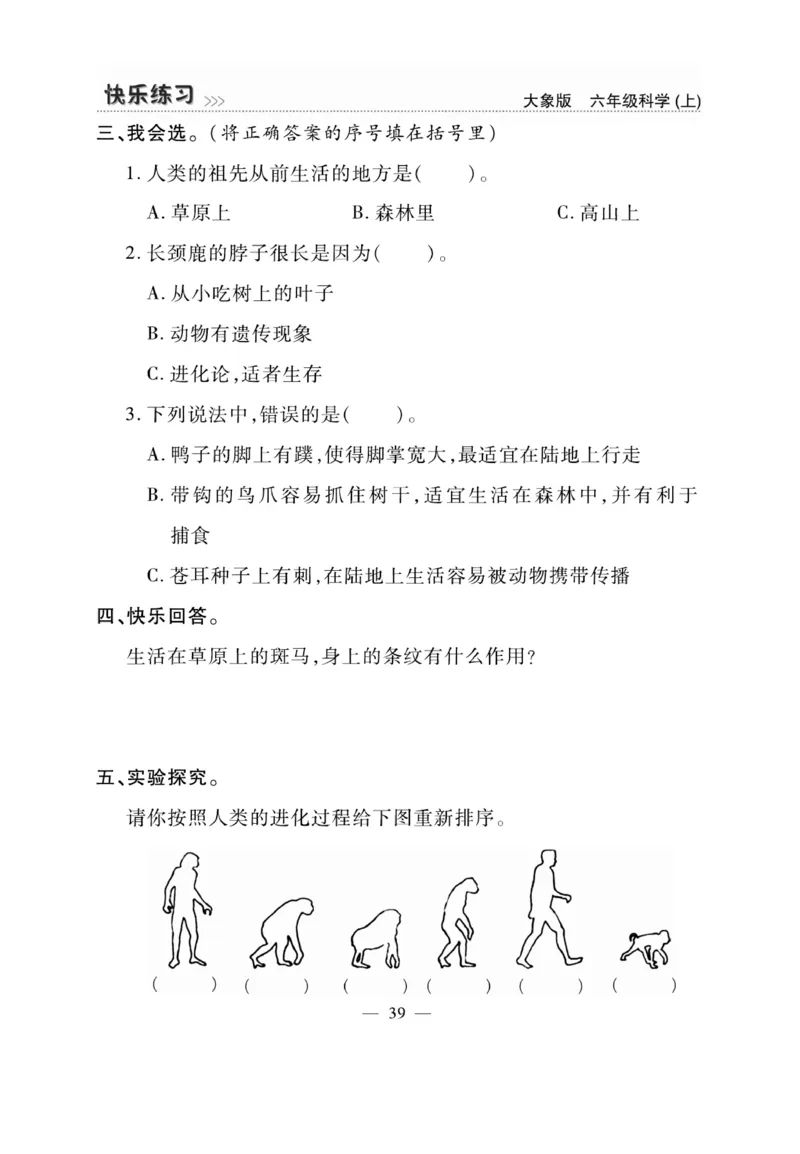 快乐练习 >>> 大象版 六年级科学(上)
三、我会选。(将正确答案的序号填在括号里)
1. 人类的祖先从前生活的地方是(  )。
A. 草原上 B. 森林里 C. 高山上
2. 长颈鹿的脖子很长是因为(  )。
A. 从小吃树上的叶子
B. 动物有遗传现象
C. 进化论,适者生存
3. 下列说法中,错误的是(  )。
A. 鸭子的脚上有蹼,使得脚掌宽大,最适宜在陆地上行走
B. 带钩的鸟爪容易抓住树干,适宜生活在森林中,并有利于
捕食
C. 苍耳种子上有刺,在陆地上生活容易被动物携带传播
四、快乐回答。
生活在草原上的斑马,身上的条纹有什么作用?
五、实验探究。
请你按照人类的进化过程给下图重新排序。
(  ) (  ) (  ) (  ) (  ) (  )
— 39 —